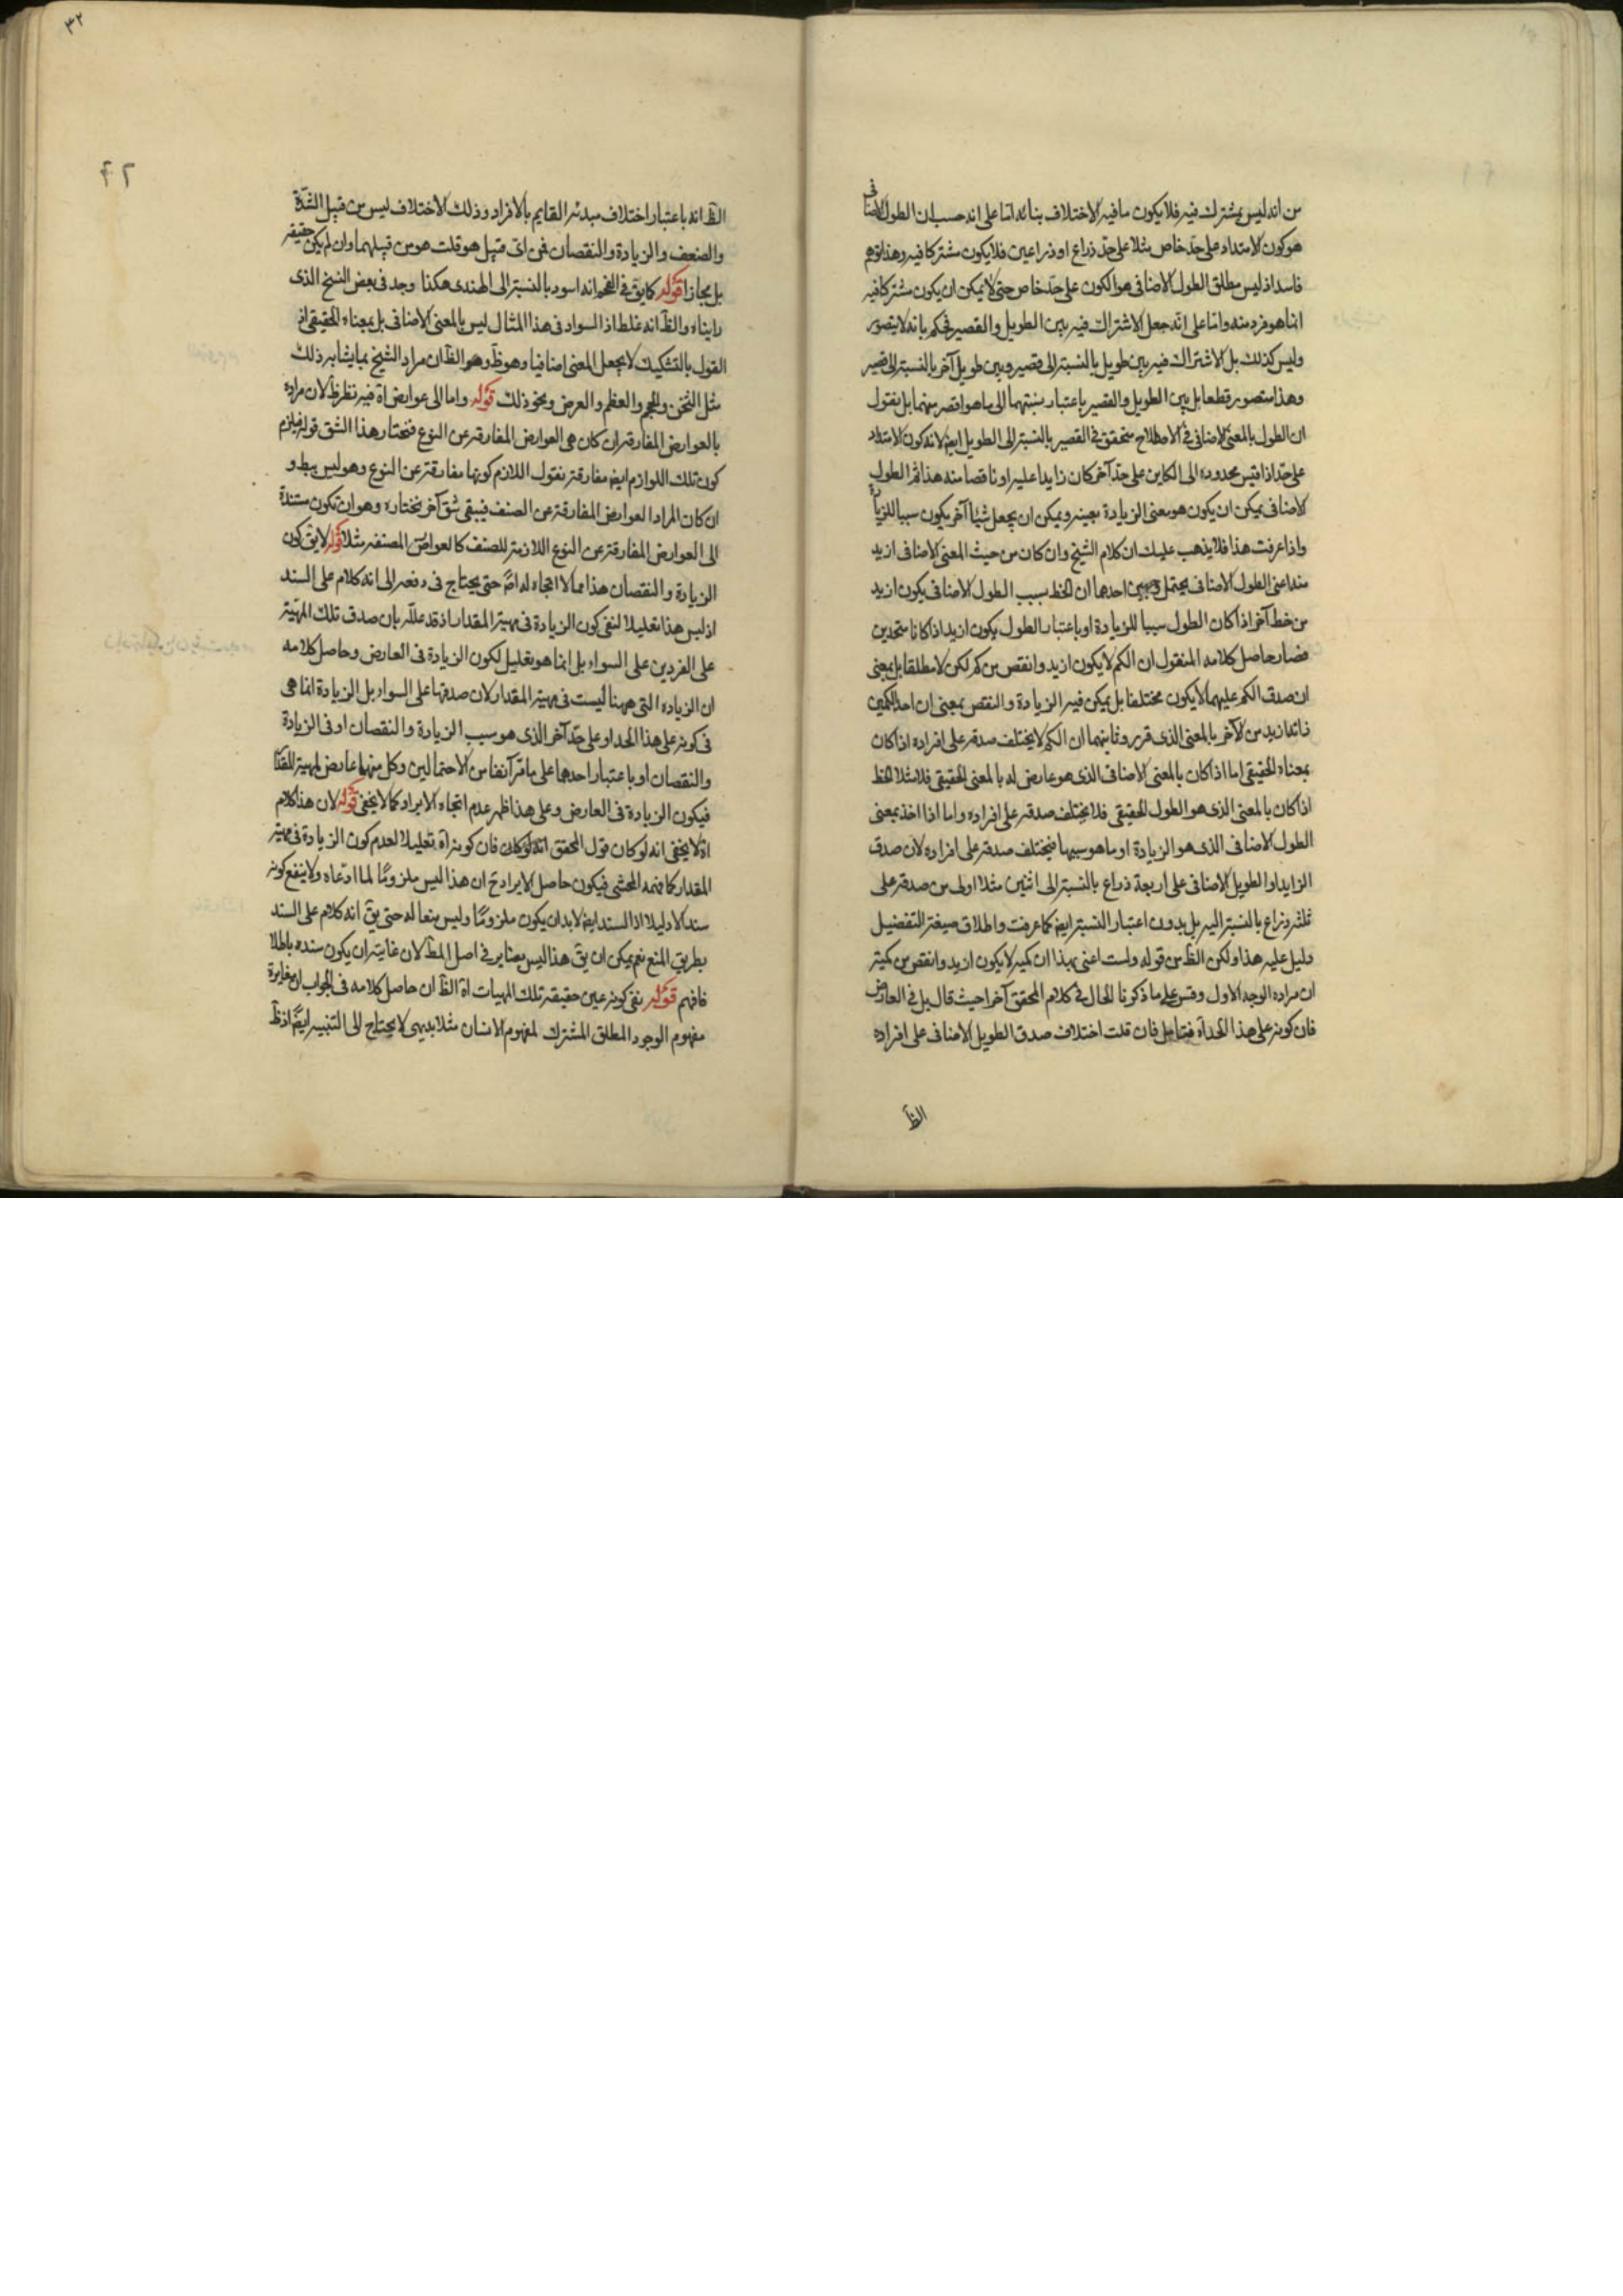 من انه ليس بمشترك فيه فلا يكون ما فيه الاختلاف بنائه اما على انه حسب ان الطول الاضافى
هو كون الامتداد على حد خاص مثلا على حد ذراع او ذراعين فلا يكون مشتركا فيه وهذا توهم
فاسد اذ ليس مطلق الطول الاضافى هو الكون على حد خاص حتى لا يمكن ان يكون مشتركا فيه
انما هو فرد منه واما على انه جعل الاشتراك فيه بين الطويل والقصير فحكم بانه لا يتصور
وليس كذلك بل الاشتراك فيه بين طويل بالنسبة الى قصير وبين طويل آخر بالنسبة الى قصير
وهذا متصور قطعا بل بين الطويل والقصير باعتبار نسبتهما الى ما هو اقصر منهما بل نقول
ان الطول بالمعنى الاضافى فى الاصطلاح متحقق فى القصير بالنسبة الى الطويل ايضا لانه كون الامتداد
على حد اذا قيس محدوده الى الكاين على حد آخر كان زايدا عليه او ناقصا منه هذا ثم الطول
الاضافى يمكن ان يكون هو معنى الزيادة بعينه ويمكن ان يجعل شيئا آخر يكون سببا للزيادة
واذا عرفت هذا فلا يذهب عليك ان كلام الشيخ وان كان من حيث المعنى الاضافى ازيد
منه اعنى الطول الاضافى يحتمل وجهين احدهما ان الخط بسبب الطول الاضافى يكون ازيد
من خط آخر اذا كان الطول سببا للزيادة او باعتبار الطول يكون ازيد اذا كانا متحدين
فصار حاصل كلامه المنقول ان الكم لا يكون ازيد وانقص من كم لكن لا مطلقا بل بمعنى
ان صدق الكم عليهما لا يكون مختلفا بل يمكن فيه الزيادة والنقص بمعنى ان احد الكمين
زائد ازيد من الآخر بالمعنى الذى قرر وثانيهما ان الكم لا يختلف صدقه على افراده اذا كان
بمعناه الحقيقى اما اذا كان بالمعنى الاضافى الذى هو عارض له بالمعنى الحقيقى فلا مثلا الخط
اذا كان بالمعنى الذى هو الطول الحقيقى فلا يختلف صدقه على افراده واما اذا اخذ بمعنى
الطول الاضافى الذى هو الزيادة او ما هو سببها فيختلف صدقه على افراده لان صدق
الزايد او الطويل الاضافى على اربعة ذراع بالنسبة الى اثنين مثلا اولى من صدقه على
ثلثه ذراع بالنسبة اليه بل بدون اعتبار النسبة ايضا كما عرفت واطلاق صيغة التفضيل
دليل عليه هذا ولكن الظ من قوله ولست اعنى بهذا ان كمية لا يكون ازيد وانقص من كمية
ان مراده الوجه الاول وقس على ما ذكرنا الحال فى كلام المحقق آخرا حيث قال بل فى العارض
فان كونه على هذا الحد آه فتامل فان قلت اختلاف صدق الطويل الاضافى على افراده
الظ
٣٢
الظ انه باعتبار اختلاف مبدئه القايم بالافراد وذلك الاختلاف ليس من قبيل الشدة
والضعف والزيادة والنقصان فمن اى قبيل هو قلت هو من قبيلهما وان لم يكن حقيقة
بل مجازا قوله كما يق فى الفحم انه اسود بالنسبة الى الهندى هكذا وجد فى بعض النسخ الذى
رايناه والظ انه غلط اذ السواد فى هذا المثال ليس بالمعنى الاضافى بل بمعناه الحقيقى اذ
القول بالتشكيك لا يجعل المعنى اضافيا وهو ظ وهو الظ ان مراد الشيخ بما يشابه ذلك
مثل الثخن والحجم والعظم والعرض ونحو ذلك قوله واما الى عوارض آه فيه نظر ظ لان مراده
بالعوارض المفارقة ان كان هى العوارض المفارقة عن النوع فنختار هذا الشق قوله فيلزم
كون تلك اللوازم ايضا مفارقة نقول اللازم كونها مفارقة عن النوع وهو ليس ببط و
ان كان المراد العوارض المفارقة عن الصنف فيبقى شق آخر نختاره وهو ان تكون مستندة
الى العوارض المفارقة عن النوع اللازمة للصنف كالعوارض المصنفة مثلا قوله لا يق كون
الزيادة والنقصان هذا مما لا اتجاه له اصلا حتى يحتاج فى دفعه الى انه كلام على السند
اذ ليس هذا تعليلا لنفى كون الزيادة فى مهية المقدار اذ قد علله بان صدق تلك المهية
على الفردين على السواء بل انما هو تعليل لكون الزيادة فى العارض وحاصل كلامه
ان الزيادة التى ههنا ليست فى مهية المقدار لان صدقها على السواء بل الزيادة انما هى
فى كونه على هذا الحد او على حد آخر الذى هو سبب الزيادة والنقصان او فى الزيادة
والنقصان او باعتبار احدهما على ما مر آنفا من الاحتمالين وكل منهما عارض لمهية المقدار
فيكون الزيادة فى العارض وعلى هذا ظهر عدم اتجاه الايراد كما لا يخفى قوله لان هذا كلام
آه لا يخفى انه لو كان قول المحقق فان كونه آه تعليلا لعدم كون الزيادة فى مهية
المقدار كما فهمه المحشى فيكون حاصل الايراد ح ان هذا ليس ملزوما لما ادعاه ولا ينفع كونه
سندا لا دليلا اذ السند ايضا لا بد ان يكون ملزوما وليس منعا له حتى يق انه كلام على السند
بطريق المنع نعم يمكن ان يق هذا ليس بضاير فى اصل المط لان غايته ان يكون سنده باطلا
فافهم قوله نفى كونه عين حقيقة تلك المهيات آه الظ ان حاصل كلامه فى الجواب ان مغايرة
مفهوم الوجود المطلق المشترك لمفهوم الانسان مثلا بديهى لا يحتاج الى التنبيه ايضا اذ ظ